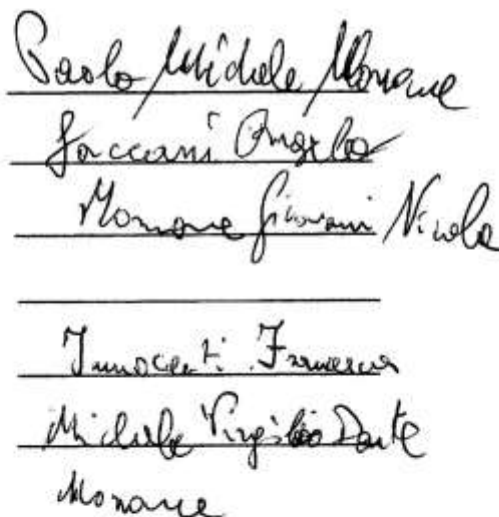 Paolo Michele Monane
Jaccani Angelo
Monane Giovanni Nicola
Innocenti Francesca
Michele Virgilio Dante
Monane